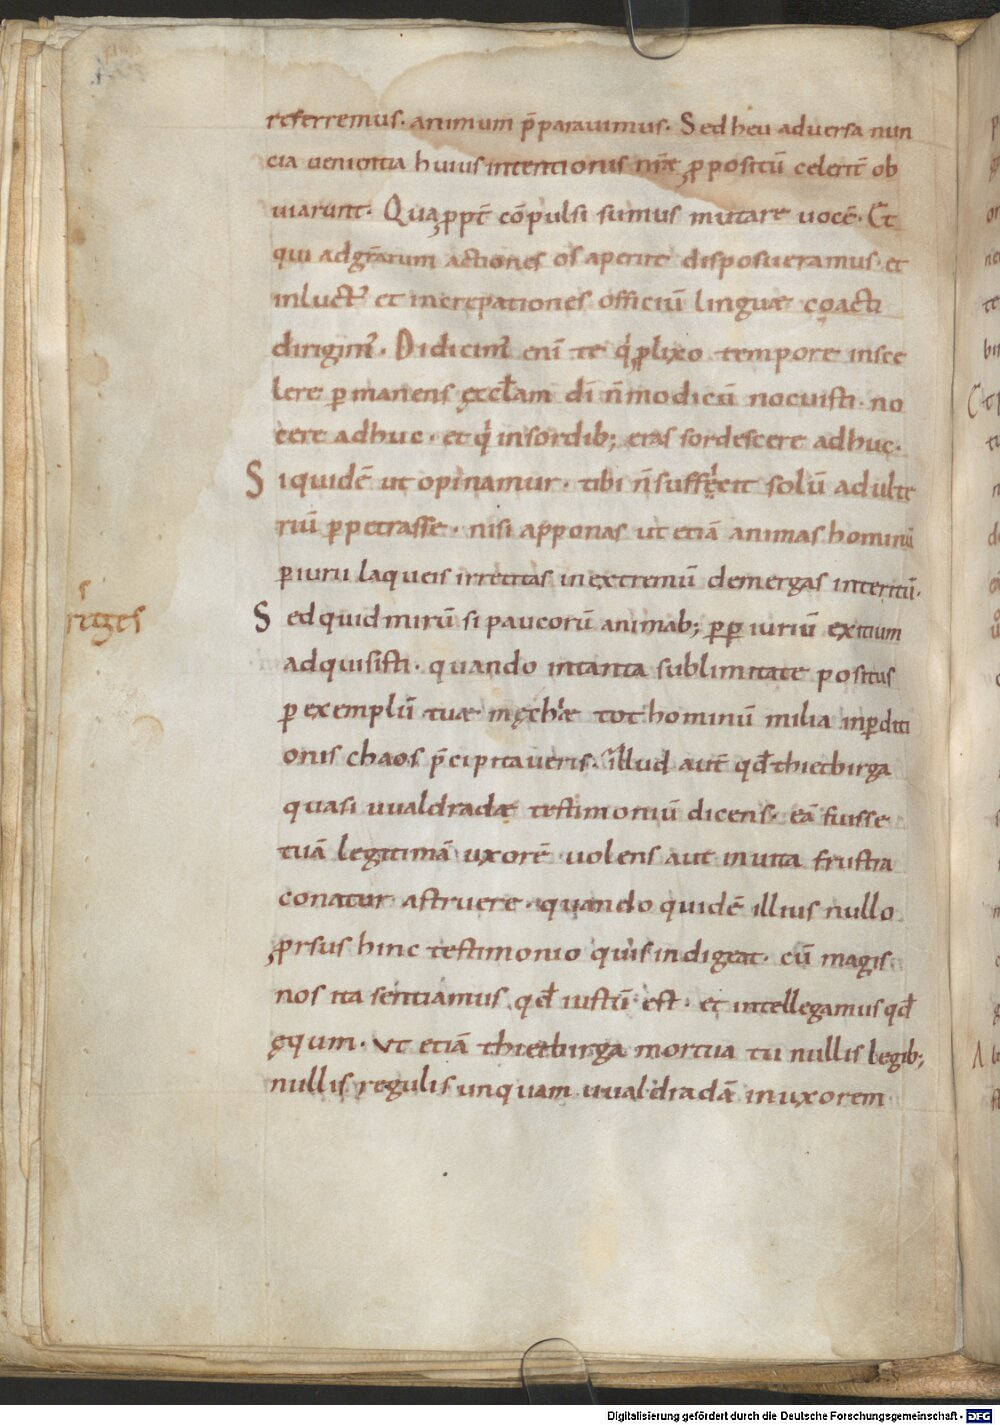 referremus. animum p̄parauimus. Sed heu aduersa nun
cia uenientia huius intentionis nr̄æ ꝓpositū celerit̄ ob
uiarunt. Quaꝓpt̄ cōpulsi sumus mutare uocē. Et
qui ad gr̄arum actiones os aperire disposueramus. et
in luct᷒ et increpationes officiū linguæ coacti
dirigim᷒. Didicim᷒ enī te q͛ ꝓlixo tempore in sce
lere ꝑmanens ęccłam dī n̄ modicū nocuisti. no
cere adhuc. et q͛ in sordib; eras sordescere adhuc.
Siquidē ut opinamur. tibi n̄ suffęcit solū adulte
riū ꝑpetrasse. nisi apponas ut etiā animas hominū
ꝑiurii laqueis irretitas in extremū demergas interitū.
Sed quid mirū si paucorū animab; ꝑ ꝑiuriū exitium
adquisisti. quando in tanta sublimitate positus
ꝑ exemplū tuæ męchiæ tot hominū milia in ꝑditi
onis chaos p̄cipitaueris. illud aut̄ qđ thietbirga
quasi uualdradæ testimoniū dicens. eā fuisse
tuā legitimā uxorē uolens aut inuita frustra
conatur astruere. quando quidē illius nullo
ꝓrsus hinc testimonio quis indigeat. cū magis
nos ita sentiamus qđ iustū est. et intellegamus qđ
ęqum. Ut etiā thietbirga mortua tu nullis legib;
nullis regulis unquam uualdradā in uxorem
Digitalisierung gefördert durch die Deutsche Forschungsgemeinschaft - DFG